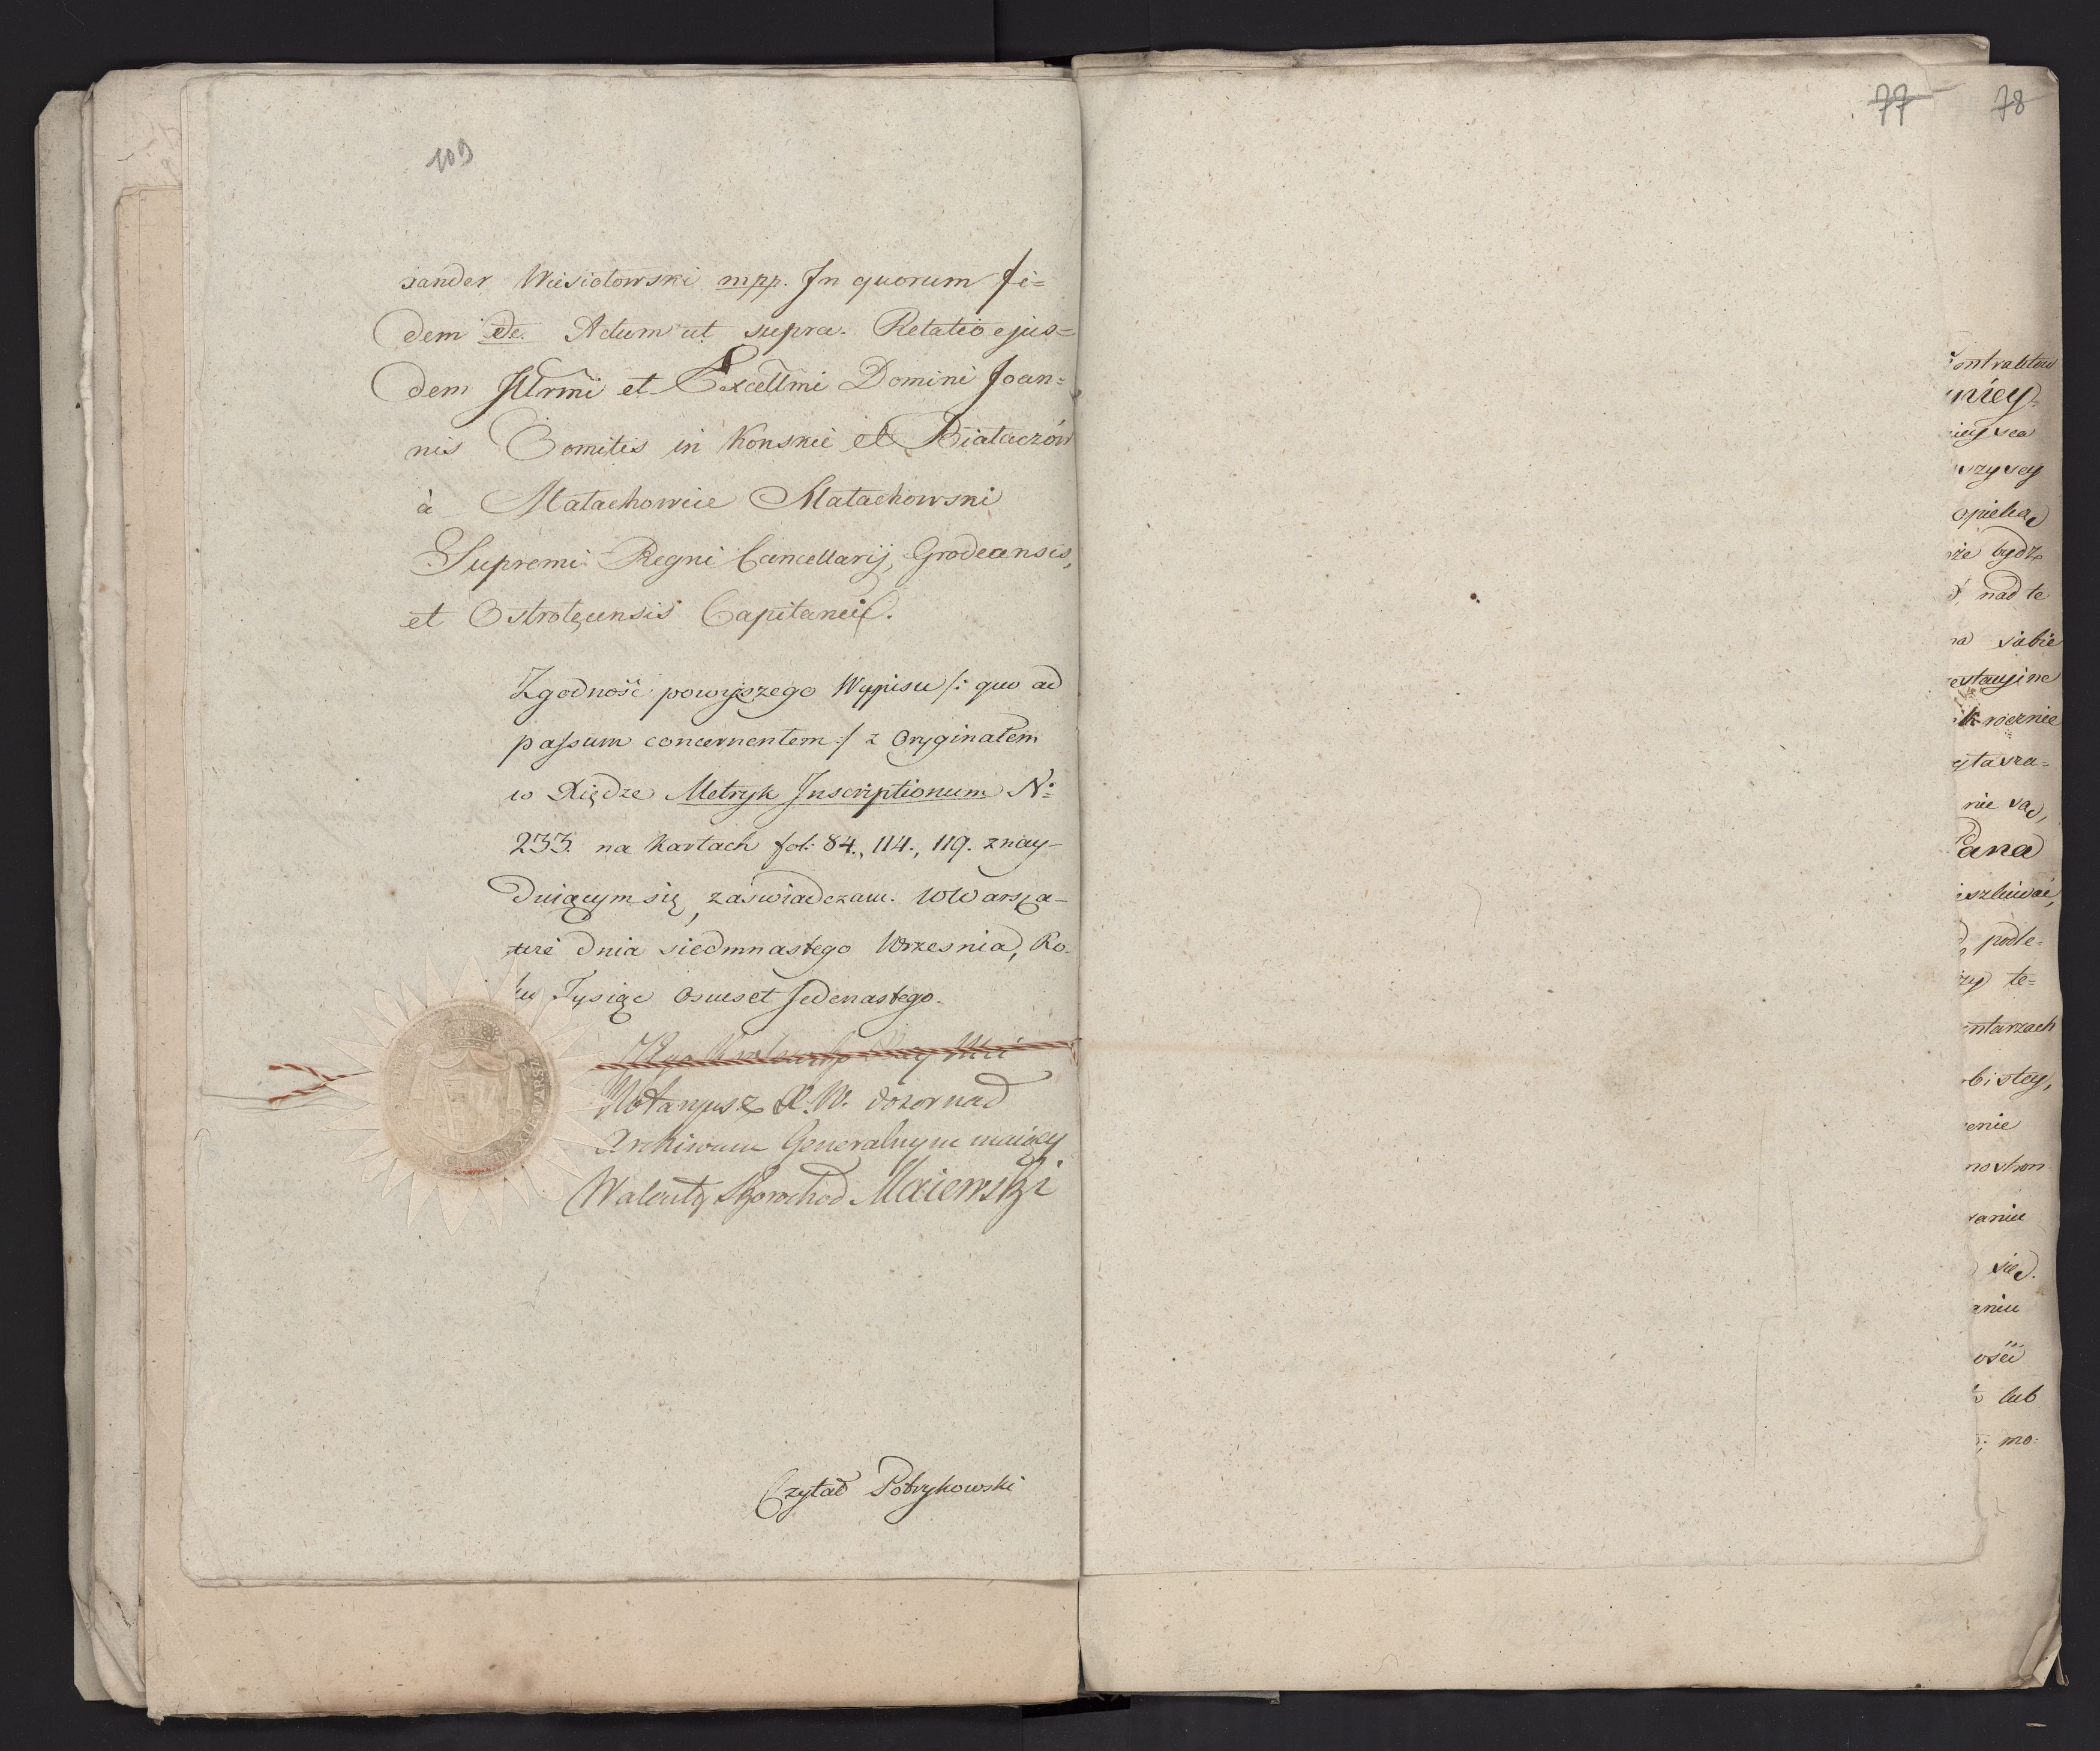 109
xander Wiesiołowski mpp. In quorum fi=
dem &c. Actum ut supra. Relatio ejus=
dem Illrmi et Excellmi Domini Joan=
nis Comitis in Konskie et Białaczów
à Małachowice Małachowski
Supremi Regni Cancellarij, Grodecensis,
et Ostrołęcensis Capitanei.
Zgodność powyższego Wypisu /: quo ad
passum concernentem :/ z Oryginałem
w Xiędze Metryk Inscriptionum No
233. na kartach fol: 84., 114., 119. znay-
duiącym się, zaświadczam. w Warsza-
wie dnia siedmnastego Wrzesnia, Ro-
ku Tysiąc osmset Jedenastego.
Notaryusz K. W. dozor nad
Archiwum Generalnym maiący
Walenty Skorochod Maiewski
Czytał Potrykowski
77 78
ontraktów
niéy-
opieką
bydź
nad te
siebie
rocznie
nie są,
Pana
podle-
te=
entarzach
bistey,
enie
aniu
się.
aniu
ości
lub
mo-